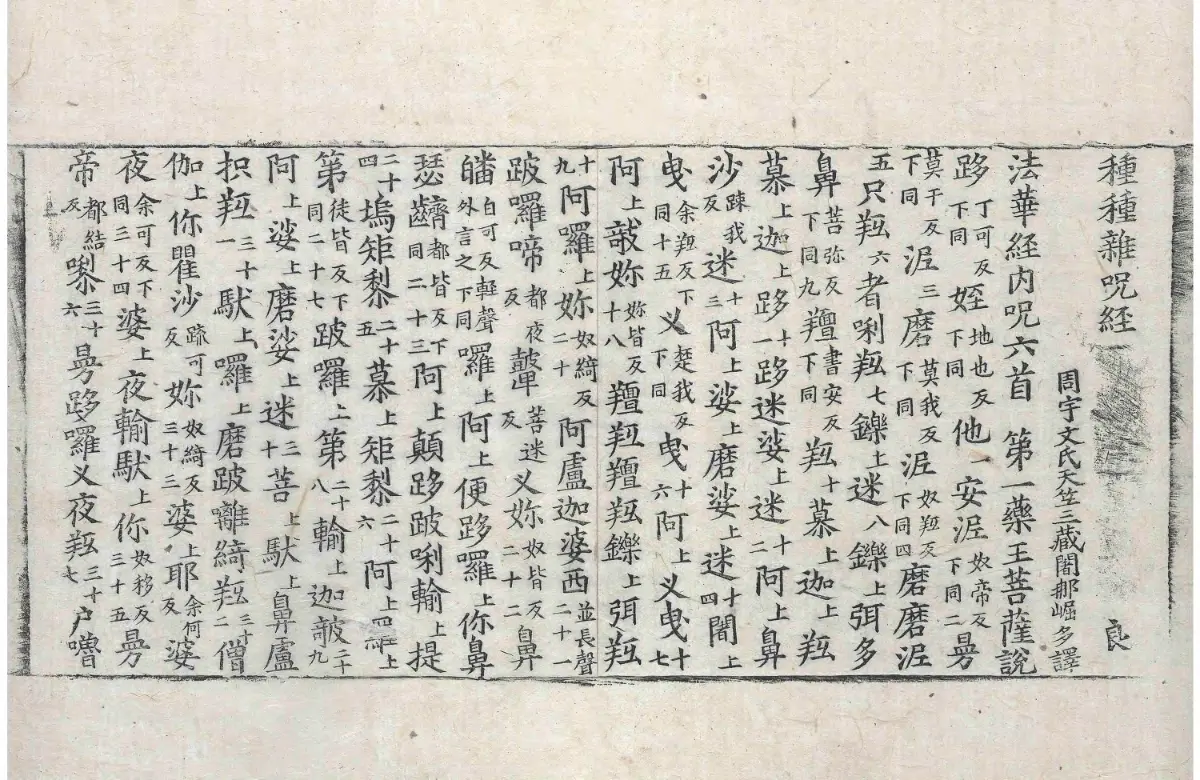 種種雜呪経一　良
周宇文氏天竺三藏闍那崛多譯
法華経内呪六首　第一藥王菩薩說
跢丁可反下同姪地也反下同他一安泥奴帝反下同二曼
莫干反下同泥三磨莫我反下同泥奴羝反下同四磨磨泥
五只羝六者唎羝七鑠上迷八鑠上弭多
鼻菩弥反下同九羶書安反下同羝十慕上迦上羝
慕上迦上跢十一跢迷娑上迷十二阿上鼻
沙踈我反迷十三阿上娑上磨娑上迷十四闍上
曳余羝反下同十五义楚我反下同曳十六阿上义曳十七
阿上㪍妳妳皆反十八羶羝羶羝鑠上弭羝
十九阿囉上妳奴綺反二十阿盧迦婆西並長聲二十一
跛囉啼都夜反鼙菩迷反义妳奴皆反二十二鼻
皤白可反軽聲外言之下同囉上阿上便跢囉上你鼻
瑟䶩都皆反下同二十三阿上顛跢跛唎輸上提
二十四塢矩黎二十五慕上矩黎二十六阿上四上
第徒皆反下同二十七跛囉上第二十八輸上迦㪍二十九
阿上娑上磨娑上迷三十菩上馱上鼻盧
抧羝三十一馱上囉上磨跛囄綺羝三十二僧
伽上你瞿沙疏可反妳奴綺反三十三婆上耶余何反婆
夜余可反下同三十四婆上夜輸馱上你奴移反三十五曼
帝都結反嚟三十六曼跢囉义夜羝三十七户嚕